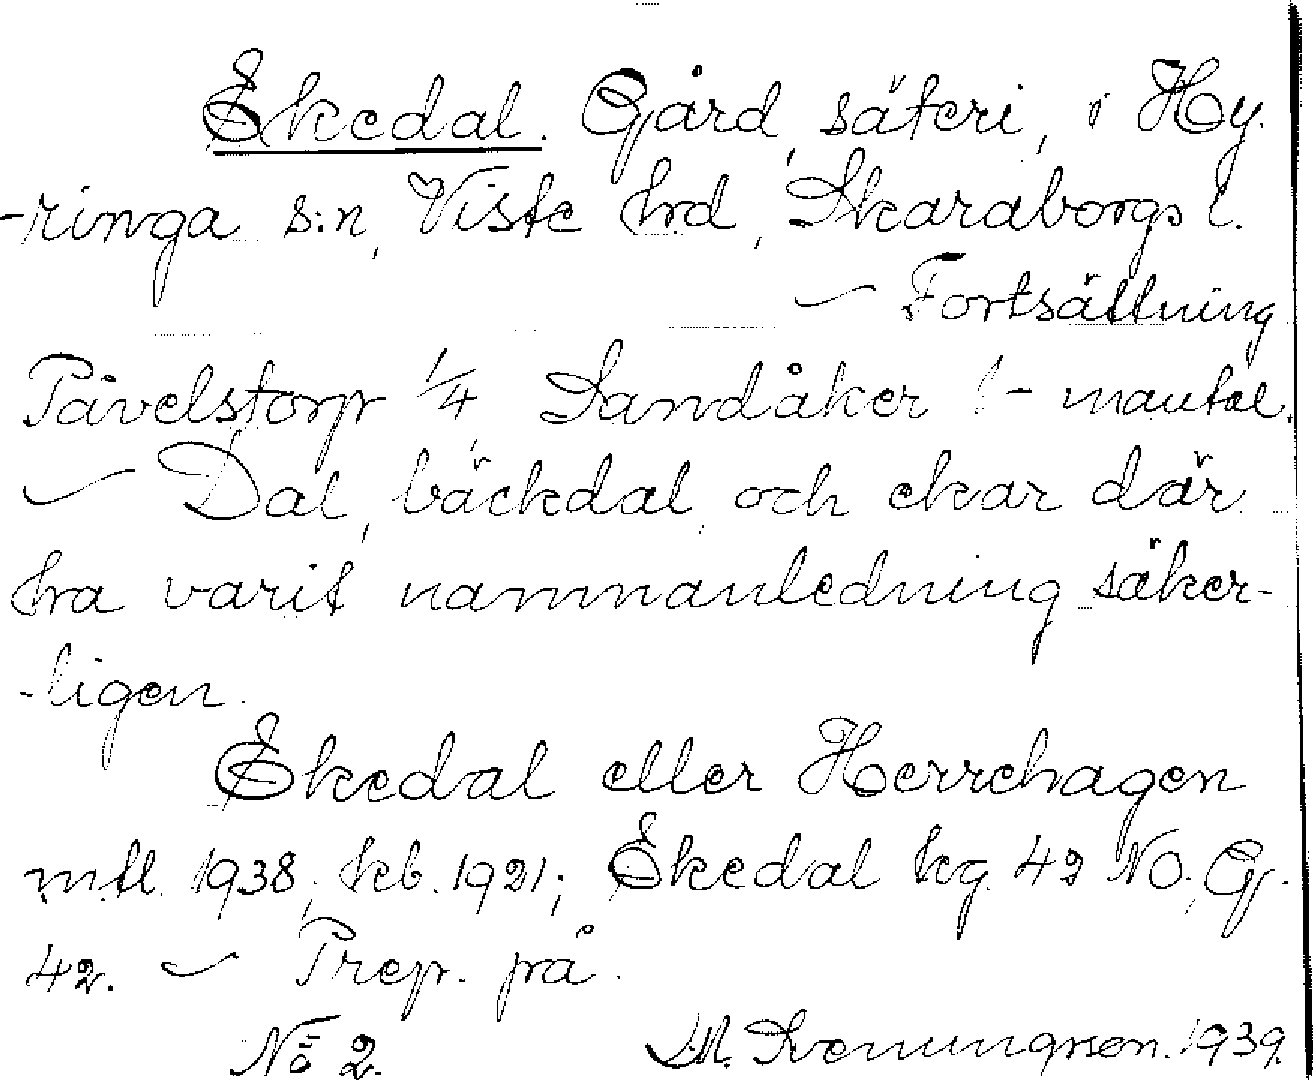 Ekedal. Gård, säteri, i Hy-
-ringa s:n, Viste hrd, Skaraborgs l.
— Fortsättning
Påvelstorp 1/4, Sandåker 1- mantal.
— Dal, bäckdal, och ekar där
ha varit namnanledning säker-
-ligen.
Ekedal eller Herrehagen
mtl. 1938, kb. 1921; Ekedal kg. 42 NO. G.
42. — Prep. på.
No 2. 1939.